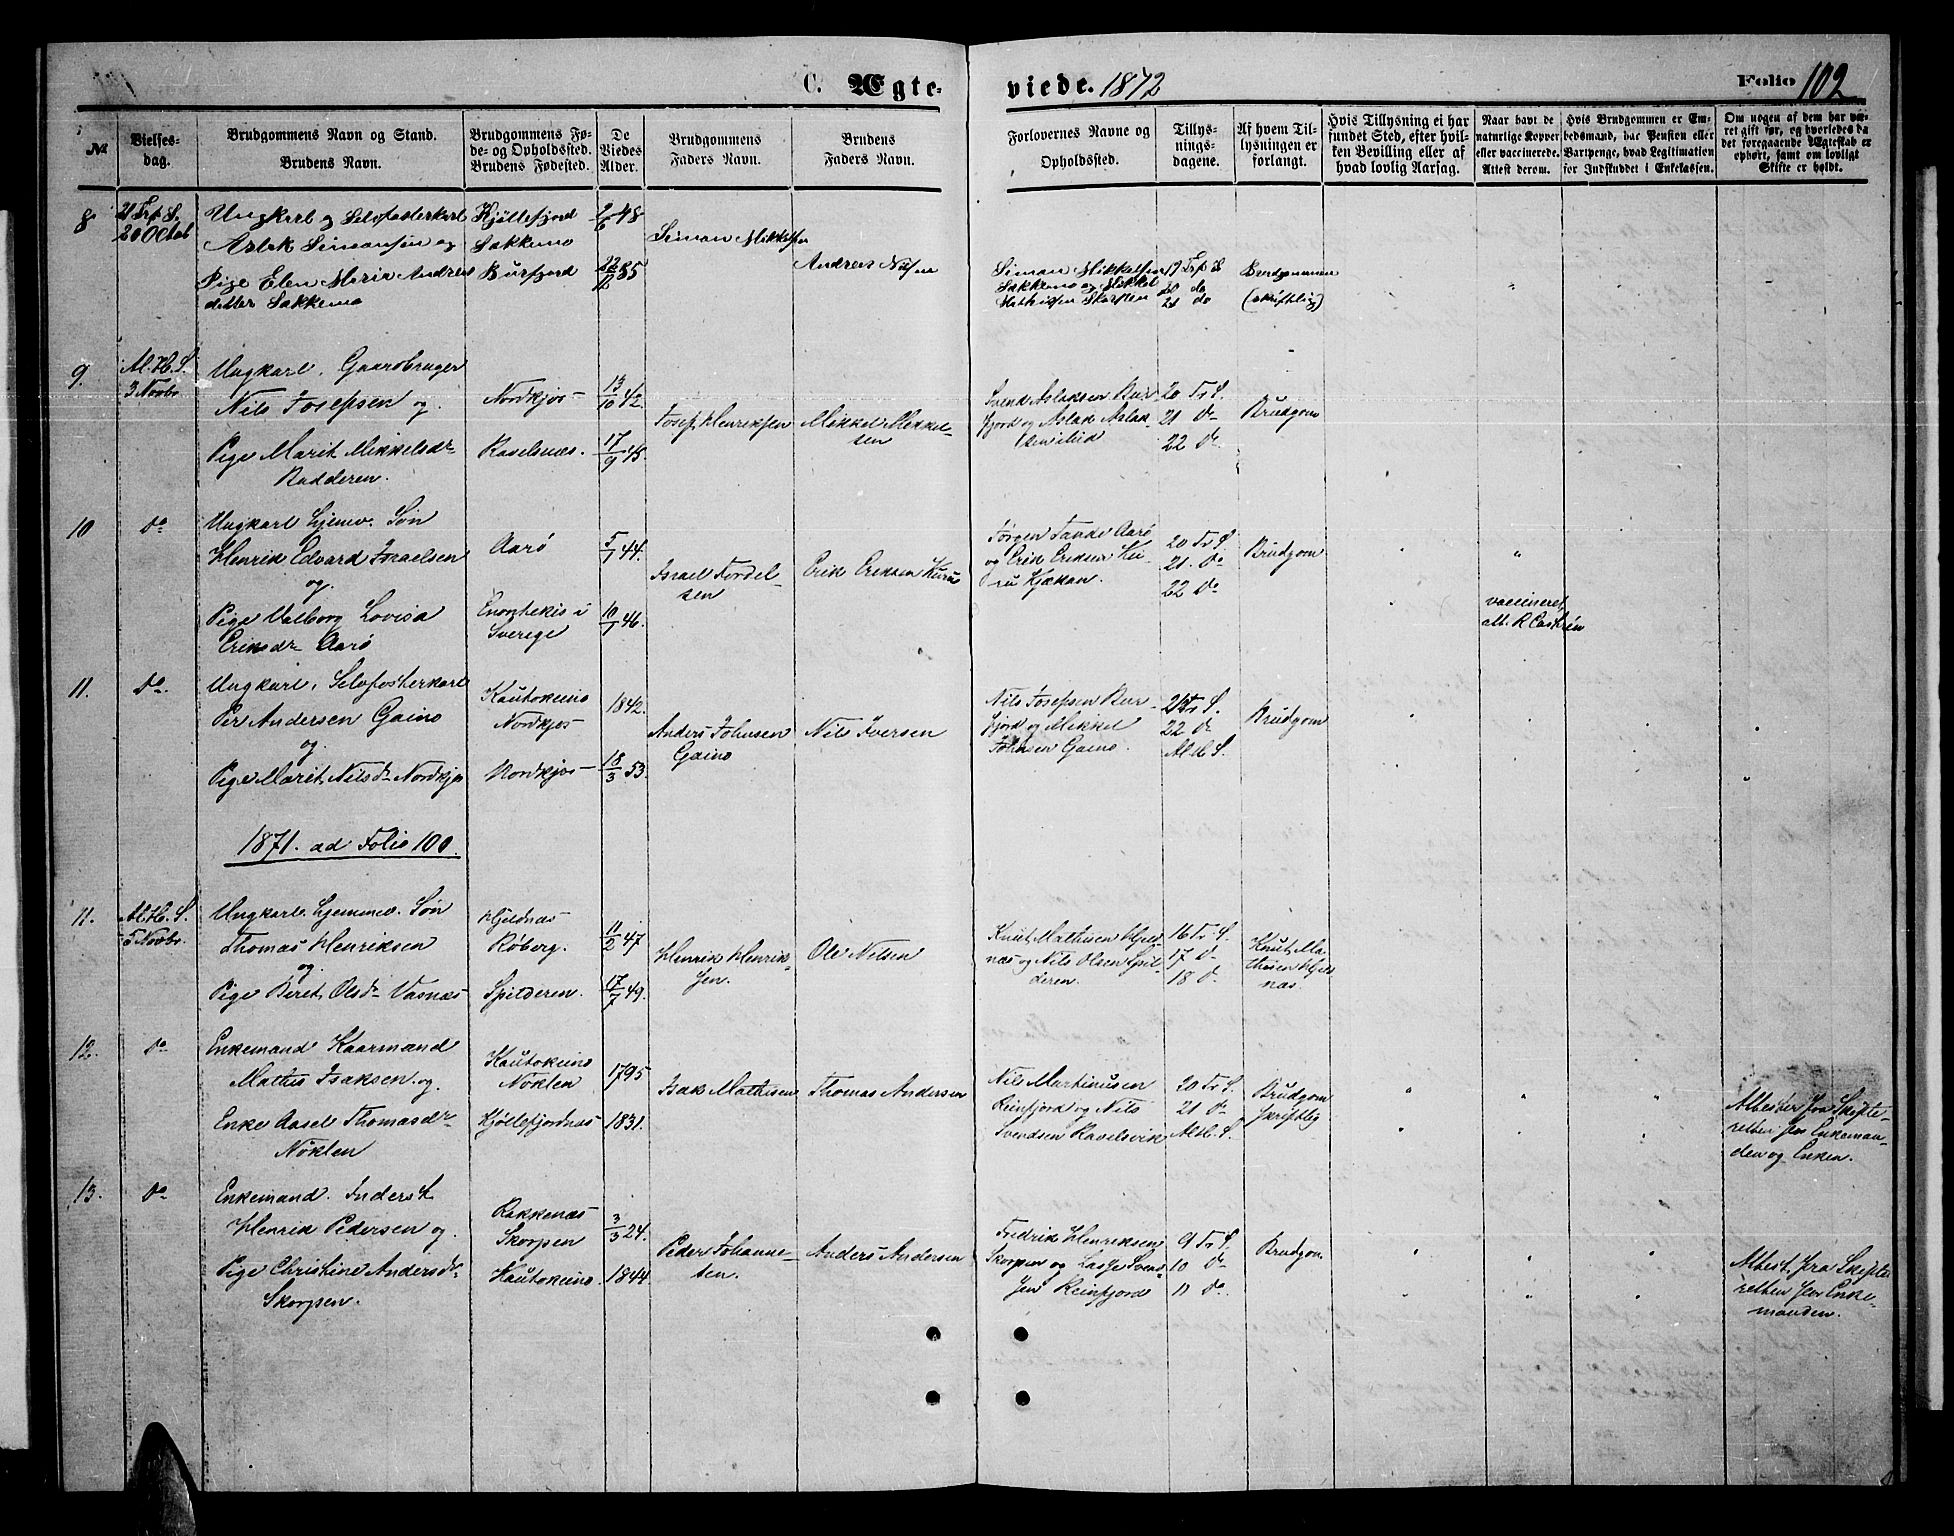 C. Ægte-
viede. 1872
Folio 102
№
Vielses-
dag.
Brudgommens Navn og Stand.
Brudens Navn.
Brudgommens Fø-
de- og Opholdssted.
Brudens Fødested.
De
Viedes
Alder.
Brudgommens
Faders Navn.
Brudens
Faders Navn.
Forlovernes Navne og
Opholdssted.
Tillys-
nings-
dagene.
Af hvem Til-
lysningen er
forlangt.
Hvis Tillysning ei har
fundet Sted, efter hvil-
ken Bevilling eller af
hvad lovlig Aarsag.
Naar havt de
naturlige Kopper
eller vaccinerede.
Attest derom.
Hvis Brudgommen er Em-
bedsmand, har Pension eller
Vartpenge, hvad Legitimation
for Indskuddet i Enkekassen.
Om nogen af dem har væ-
ret gift før, og hvorledes da
det foregaaende Ægteskab er
ophørt, samt om lovligt
Skifte er holdt.
8
21 Trp S.
20 Octob
Ungkarl og Selvfosterkarl
Aslak Simonsen og
Pige Elen Maria Andreas
datter Sakkemo
Kjöllefjord
Sakkemo
Burfjord
2/6 48
22/12 85
Simon Mikkelsen
Andreas Nilsen
Simon Mikkelsen
Sakkemo og Mikkel
Mathissen
19 Trp S
20 do
21 do
Brudgommen
(skriftlig)
9.
Al. H. S.
3 Novbr
Ungkarl, Gaardbruger
Nils Josepsen og
Pige Marit Mikkelsdr
Badderen.
Nordkjos
Ravelsnæs.
13/10 42.
17/9 45.
Josep Henriksen
Mikkel Mikkel-
sen
Svend Aslaksen Bur-
fjord og Aslak Aslak
20 Tr S.
21 Do
22 Do
Brudgom
10
Do
Ungkarl hjemv. Søn
Henrik Edvard Israelsen
og
Pige Valborg Lovisa
Eriksdr Aarö
Aarö
Enontekis i
Sverige
5/7 44.
10/7 46.
Israel Fordel-
sen
Erik Eriksen
Jørgen Tande Aarö
og Erik Eriksen Ku-
ru Kjækan.
20 Tr S.
21. Do
22 Do
Brudgom
"
vaccineret,
att. R Castrén
11.
Do.
Ungkarl, Selvfosterkarl
Per Andersen Gaino
og
Pige Marit Nilsdr Nordkjos
Kautokeino
Nordkjos
Nordkjos
1842.
18/3 53.
Anders Johnsen
Gaino
Nils Iversen
Nils Josepsen Bur-
fjord og Mikkel
Johnsen Gaino.
21 Tr S.
22 Do
Al. H. S.
Brudgom
1871. ad Folio 100.
11.
Al. H. S.
5 Novbr.
Ungkarl hjemmev. Søn
Thomas Henriksen
og
Pige Beret Olsdr Vasnæs
Hjeldnæs
Røberg.
Spilderen.
11/2 47
17/7 49.
Henrik Henrik-
sen.
Ole Nilsen
Knut Mathisen Hjeld-
næs og Nils Olsen Spil-
deren.
16 Tr. S.
17 Do
18 Do
Knut Ma-
thisen Hjeld-
næs.
12.
Do
Enkemand Kaarmand
Mathis Isaksen og
Enke Aasel Thomasdr
Nöklen
Kautokeino
Nöklen
Kjöllefjordnæs
1795
1831.
Isak Mathisen
Thomas Andersen
Nils Martinusen
Reinfjord og Nils
Svendsen Ravelsvik
20 Tr S.
21 Do
Al. H. S.
Brudgom
skriftlig
"
"
"
Attester fra Skifte-
retten for Enkeman-
den og Enken.
13.
Do
Enkemand. Inderst
Henrik Pedersen og
Pige Christine Andersdr
Skorpen.
Rakkenæs
Skorpen
Kautokeino
3/3 24.
1844
Peder Johanne-
sen.
Anders Andersen
Fredrik Henriksen
Skorpen og Lasse Svend-
sen Reinfjord
9 Tr S.
10 Do
11 Do.
Brudgom
"
"
"
Attest fra Skifte
retten for Enke-
manden.